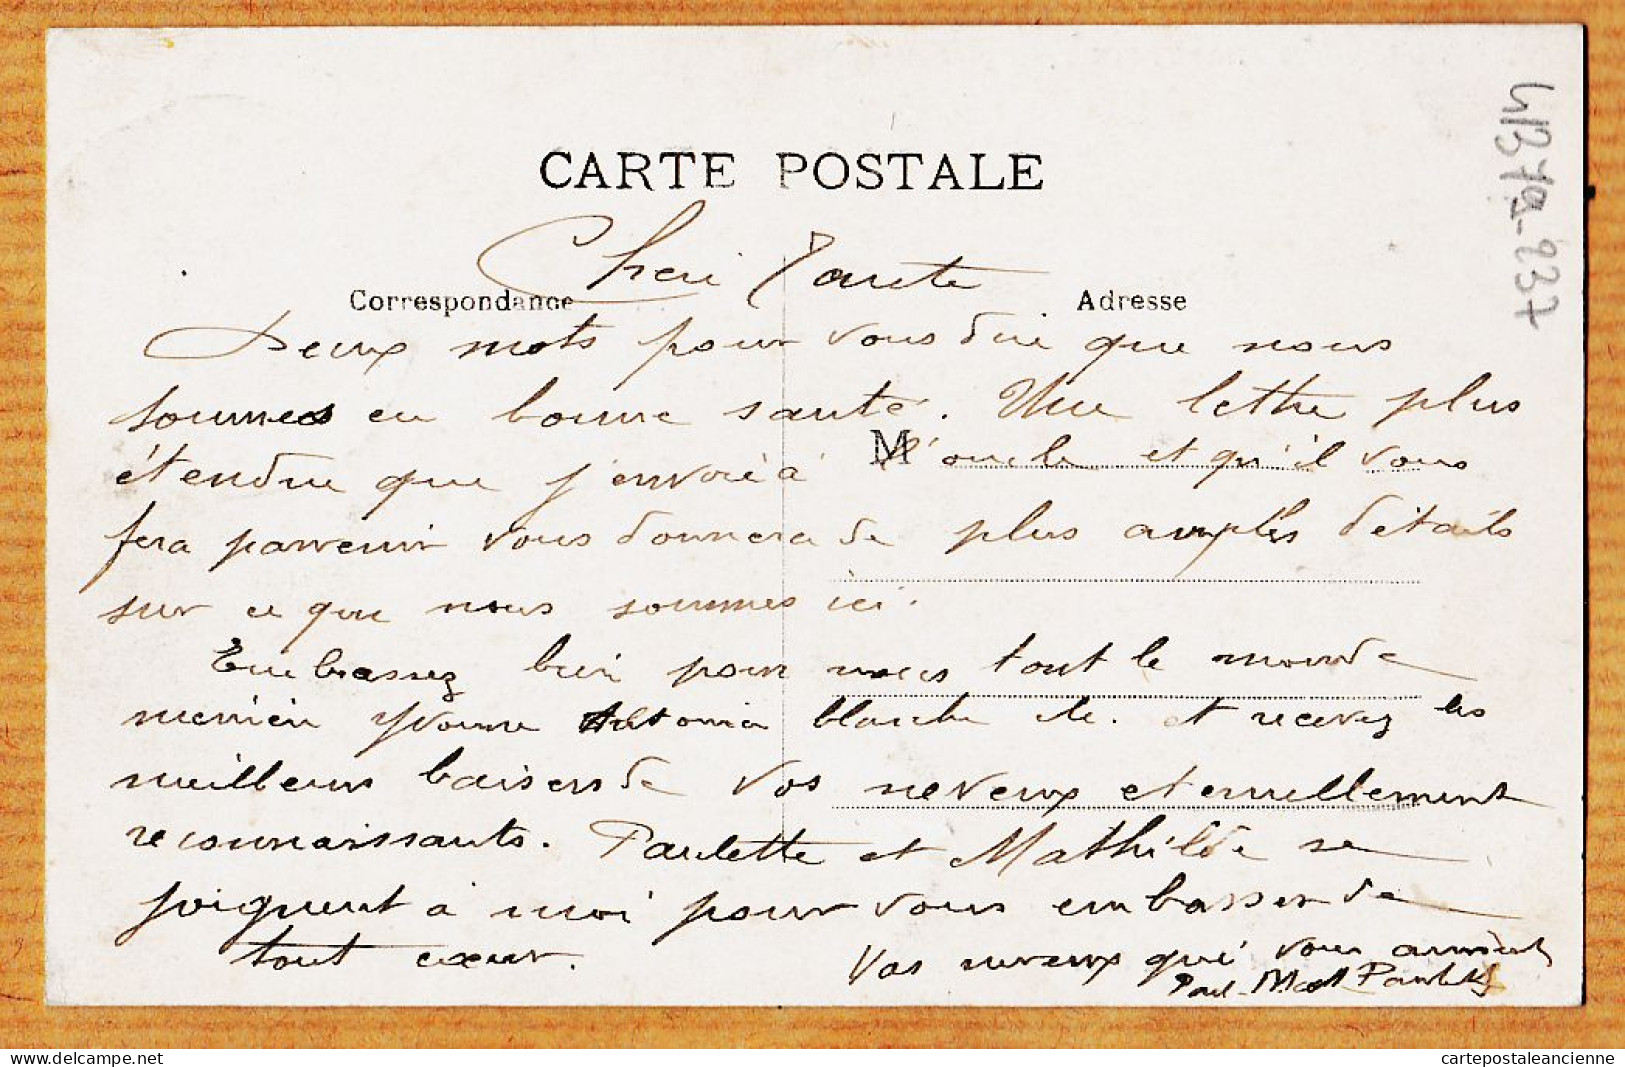 CARTE POSTALE
Cheri Tante
Correspondance
Adresse
Deux mots pour vous dire que nous
sommes en bonne santé. Une lettre plus
étendue que j'envoie à l'oncle et qu'il vous
M
fera parvenir vous donnera de plus amples détails
sur ce que nous sommes ici.
Embrassez bien pour nous tout le monde
Yvonne Antonia blanche etc. et recevez les
meilleurs baisers de vos neveux eternellement
reconnaissants. Paulette et Mathilde se
joignent à moi pour vous embrasser de
tout cœur.
Vos neveux qui vous aiment
Paul Math Paulette
41379-237
cartepostaleancienne
Tous droits réservés delcampe.net